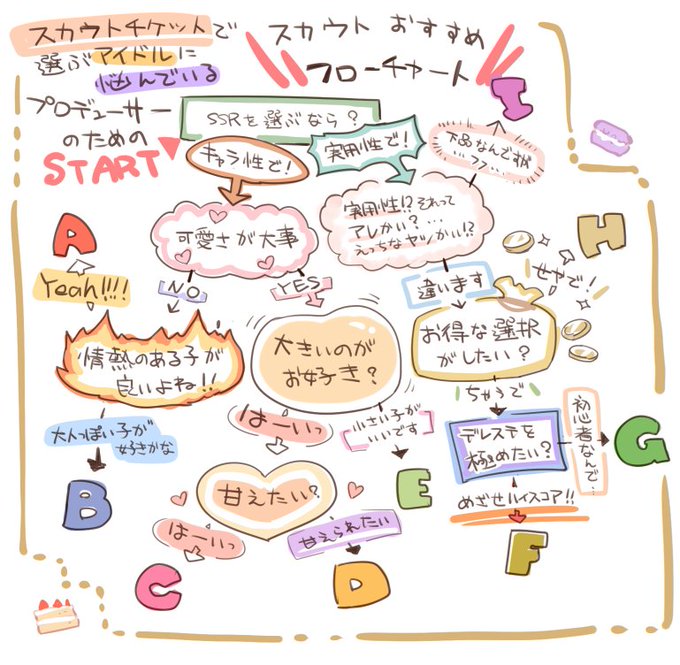 スカウトチケットで
選ぶアイドルに
悩んでいる
プロデューサー
のための
START
スカウト おすすめ
フローチャート
SSRを選ぶなら?
キャラ性で!
実用性で!
下品なんですが
…フフ…
I
可愛さが大事
実用性!?それって
アレかい?…
えっちなヤツかい!?
A
Yeah!!!!
NO
YES
違います
H
せやで!
情熱のある子が
良いよね!!
大きいのが
お好き?
お得な選択
がしたい?
大人っぽい子が
好きかな
はーいっ
小さい子が
いいです
ちゃうで
デレステを
極めたい?
初心者なんで…
G
B
甘えたい?
E
めざせハイスコア!!
はーいっ
甘えられたい
F
C
D